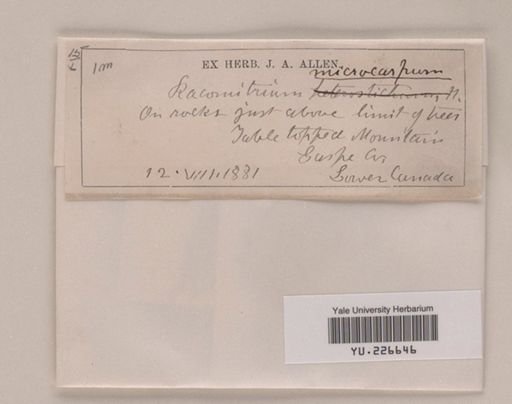 1m
EX HERB. J. A. ALLEN.
microcarpum
Racomitrium heterostichum
On rocks just above limit of trees
Table topped Mountain
Gaspe Co
12. VIII. 1881 Lower Canada
Yale University Herbarium
YU.226646